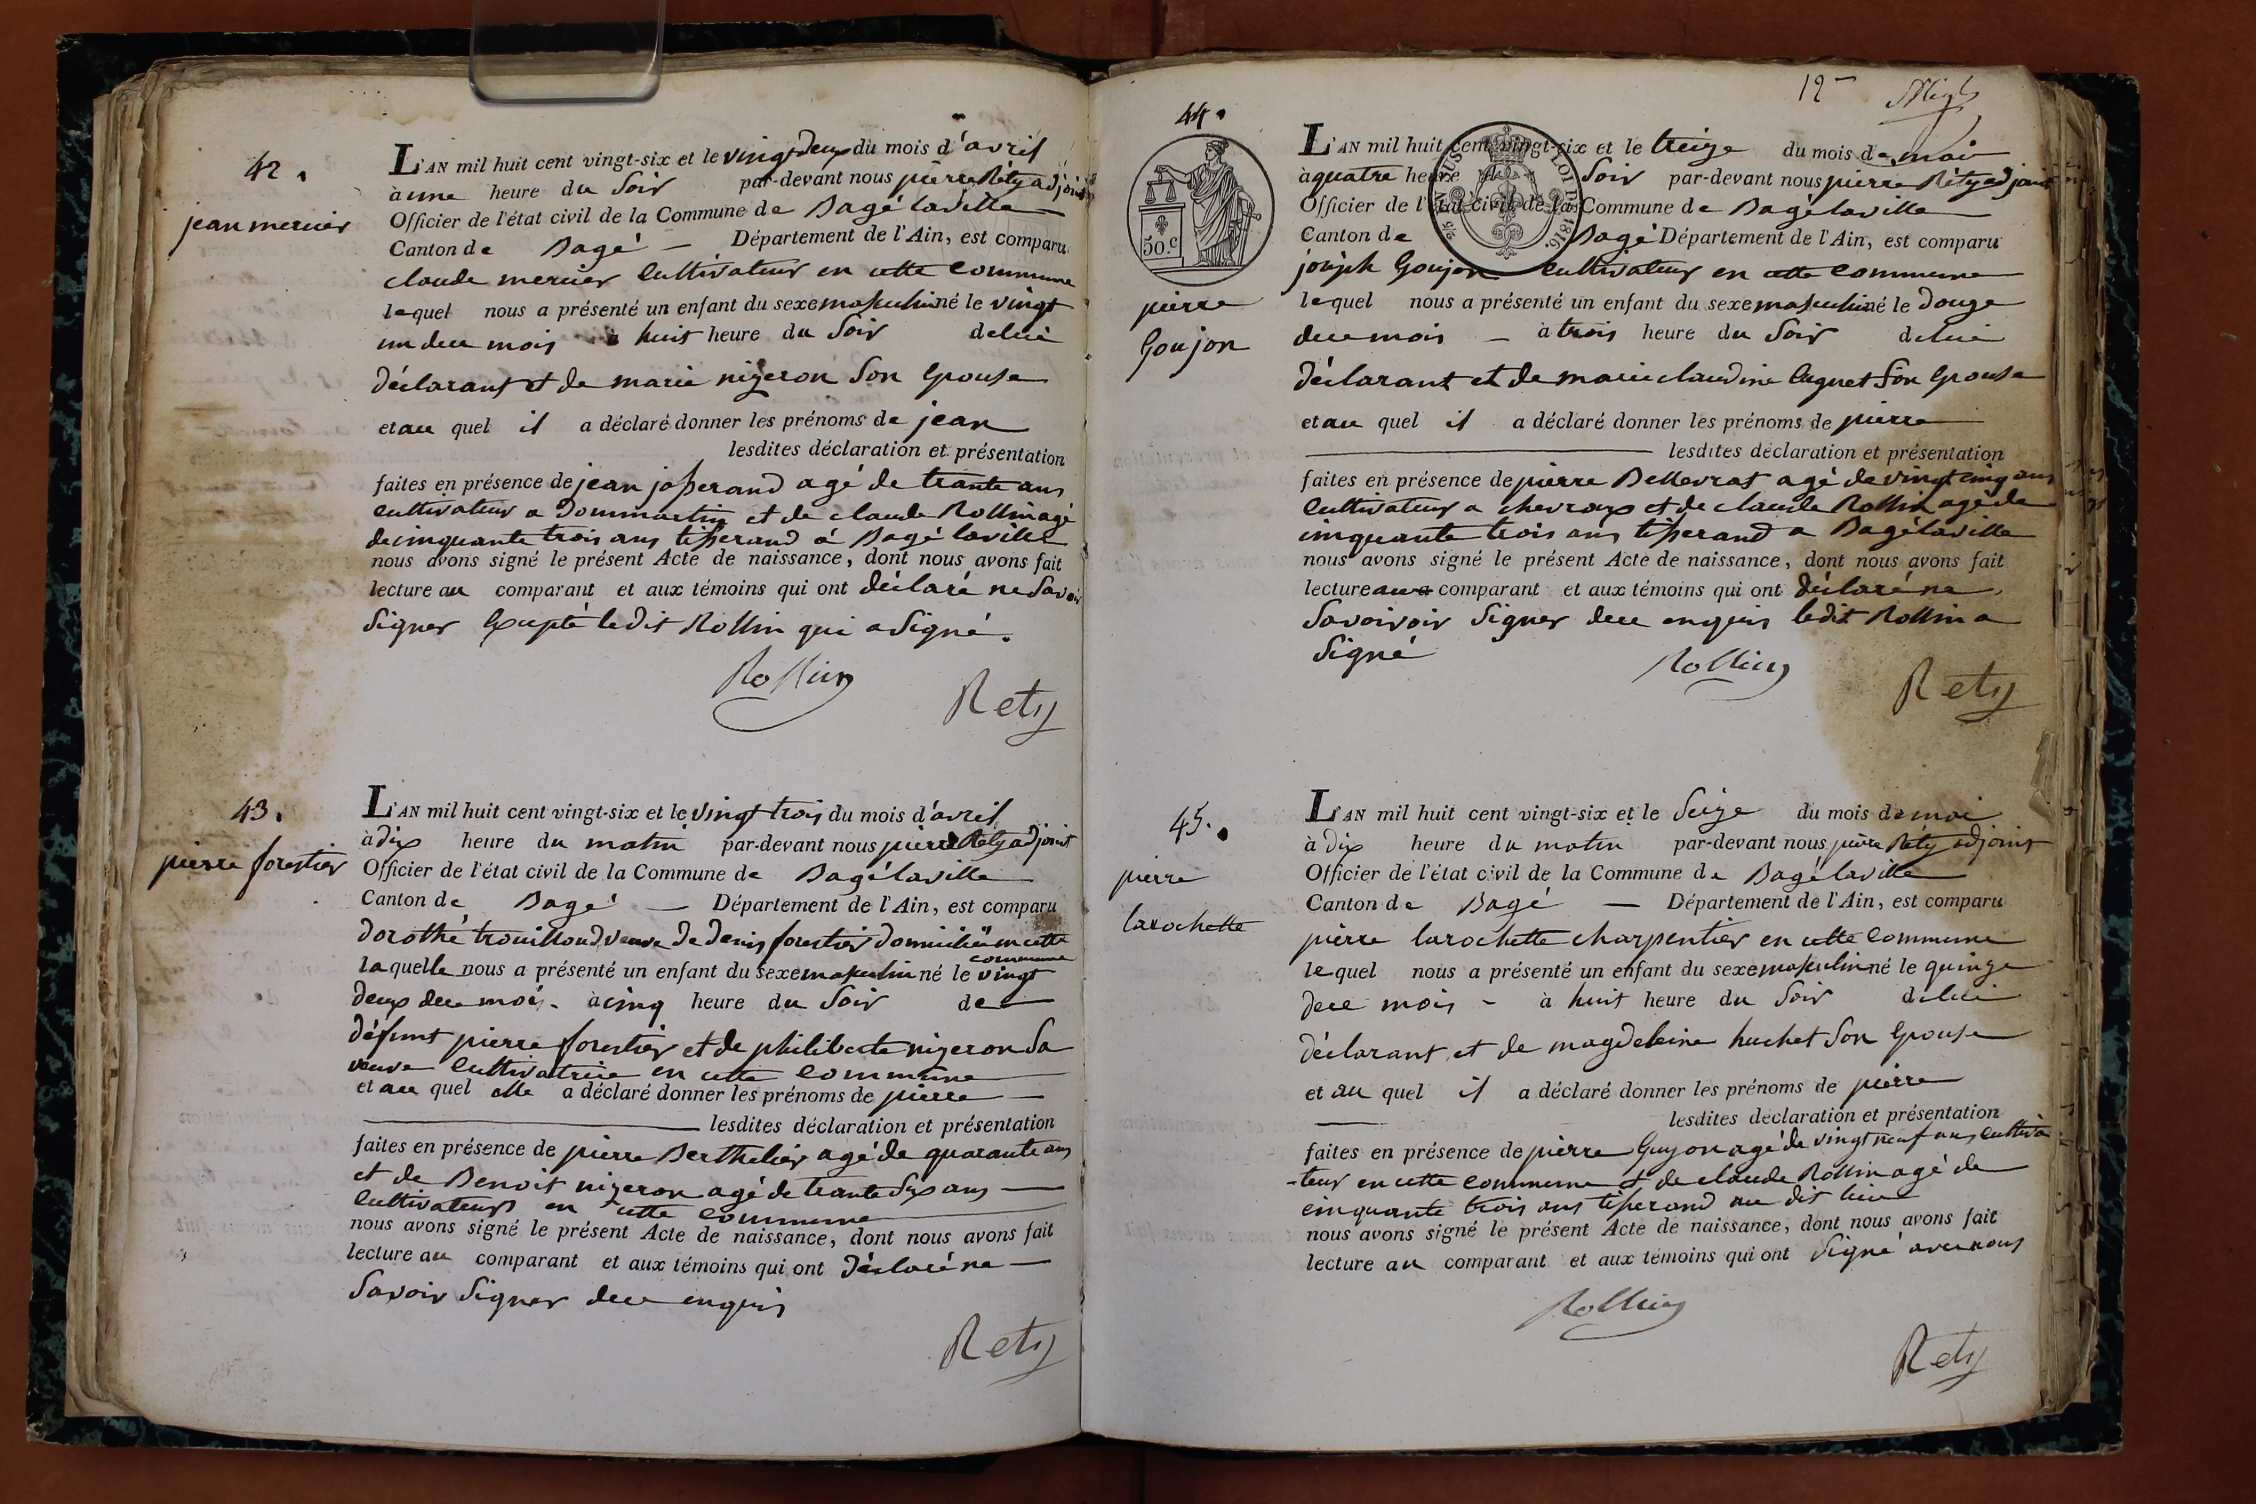 42.
jean mercier
L'AN mil huit cent vingt-six et le vingt deux du mois d'avril
à une heure du Soir par-devant nous pierre Réty adjoint
Officier de l'état civil de la Commune de Bagé laville
Canton de Bagé — Département de l'Ain, est comparu
claude mercier Cultivateur en cette Commune
lequel nous a présenté un enfant du sexe masculin né le vingt
un duu mois à huit heure du Soir delui
déclarant et de marie nizeron Son Epouse
et au quel il a déclaré donner les prénoms de jean
lesdites déclaration et présentation
faites en présence de jean josserand agé de trante ans
cultivateur a Dommartin et de claude Rollin agé
de cinquante trois ans tisserand a Bagé laville
nous avons signé le présent Acte de naissance, dont nous avons fait
lecture au comparant et aux témoins qui ont déclaré ne Savoir
Signer Exupté ledit Rollin qui a Signé.
Rollin
Rety
43.
pierre forestier
L'AN mil huit cent vingt-six et le vingt trois du mois d'avril
à dix heure du matin par-devant nous pierre Réty adjoint
Officier de l'état civil de la Commune de Bagé laville
Canton de Bagé — Département de l'Ain, est comparu
dorothé trouilloud veuve de denis forestier domiciliée en cette
commune
laquelle nous a présenté un enfant du sexe masculin né le vingt
deux duu mois - à cinq heure du Soir de
défunt pierre forestier et de philiberte nizeron Sa
veuve Cultivatrice en cette Commune
et au quel elle a déclaré donner les prénoms de pierre
lesdites déclaration et présentation
faites en présence de pierre Berthelier agé de quarante ans
et de Benoit nizeron agé de trante Six ans
Cultivateurs en cette commune
nous avons signé le présent Acte de naissance, dont nous avons fait
lecture au comparant et aux témoins qui ont déclaré ne
Savoir Signer duu enquis
Rety
12
44.
50.c
pierre
Goujon
L'AN mil huit cent vingt-six et le treize du mois de mai
à quatre heure du Soir par-devant nous pierre Réty adjoint
Officier de l'état civil de la Commune de Bagé laville
Canton de Bagé Département de l'Ain, est comparu
joseph Goujon Cultivateur en cette Commune
lequel nous a présenté un enfant du sexe masculin né le douze
duu mois — à trois heure du Soir delui
déclarant et de marie claudine Cuguet Son Epouse
et au quel il a déclaré donner les prénoms de pierre
lesdites déclaration et présentation
faites en présence de pierre Bellevrat agé de vingt cinq ans
Cultivateur a chevroux et de claude Rollin agé de
cinquante trois ans tisserand a Bagé laville
nous avons signé le présent Acte de naissance, dont nous avons fait
lecture au comparant et aux témoins qui ont déclaré ne
Savoirvoir Signer duu enquis ledit Rollin a
Signé
Rollin
Rety
45.
pierre
larochette
L'AN mil huit cent vingt-six et le Seize du mois de mai
à dix heure du matin par-devant nous pierre Réty adjoint
Officier de l'état civil de la Commune de Bagé laville
Canton de Bagé — Département de l'Ain, est comparu
pierre larochette charpentier en cette Commune
lequel nous a présenté un enfant du sexe masculin né le quinze
duu mois - à huit heure du Soir delui
déclarant et de magdeleine huchet Son Epouse
et au quel il a déclaré donner les prénoms de pierre
lesdites déclaration et présentation
faites en présence de pierre Guyon agé de vingt neuf ans Cultiva
-teur en cette commune et de claude Rollin agé de
cinquante trois ans tisserand au dit lieu
nous avons signé le présent Acte de naissance, dont nous avons fait
lecture au comparant et aux témoins qui ont Signé avec nous
Rollin
Rety